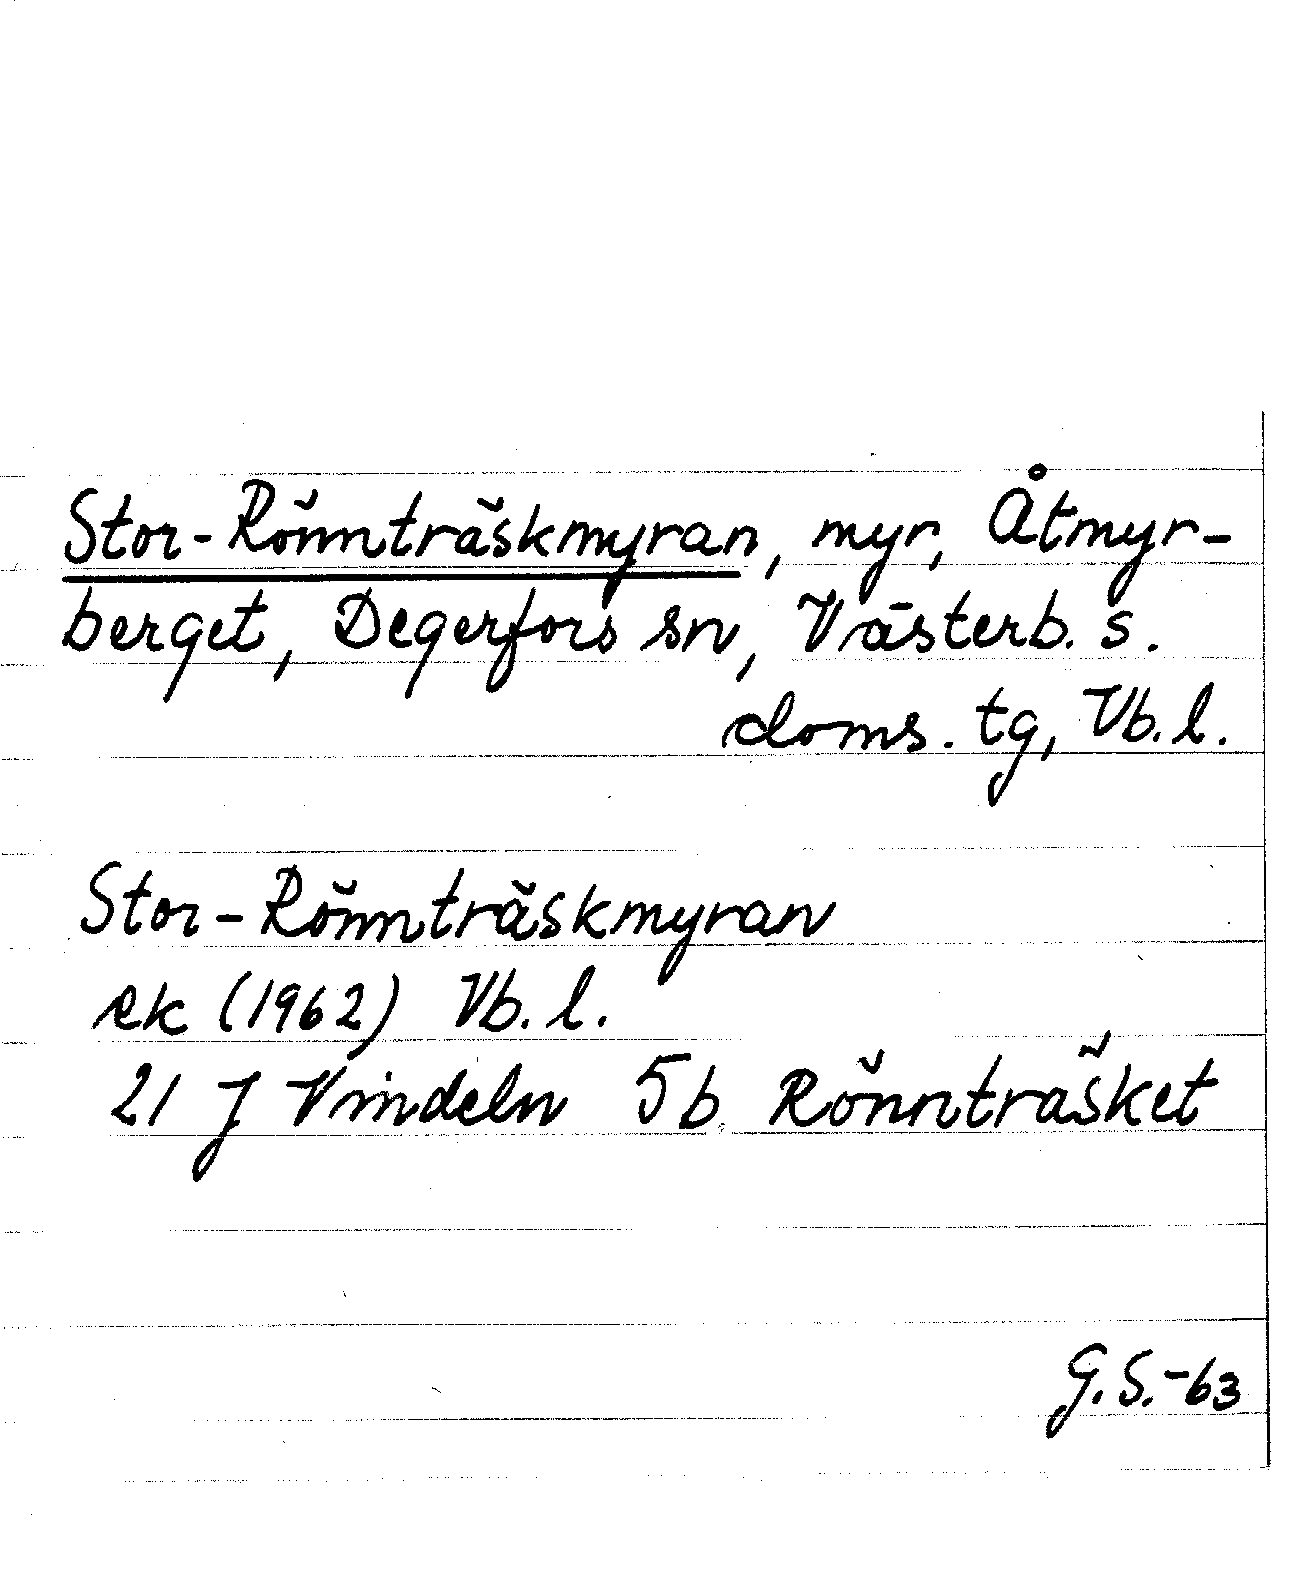 Stor-Rönnträskmyran, myr, Åtmyr-
berget, Degerfors sn, Västerb. s.
doms. tg, Vb. l.
Stor-Rönnträskmyran
ek (1962) Vb. l.
21 J Vindeln 5b Rönnträsket
G.S.-63